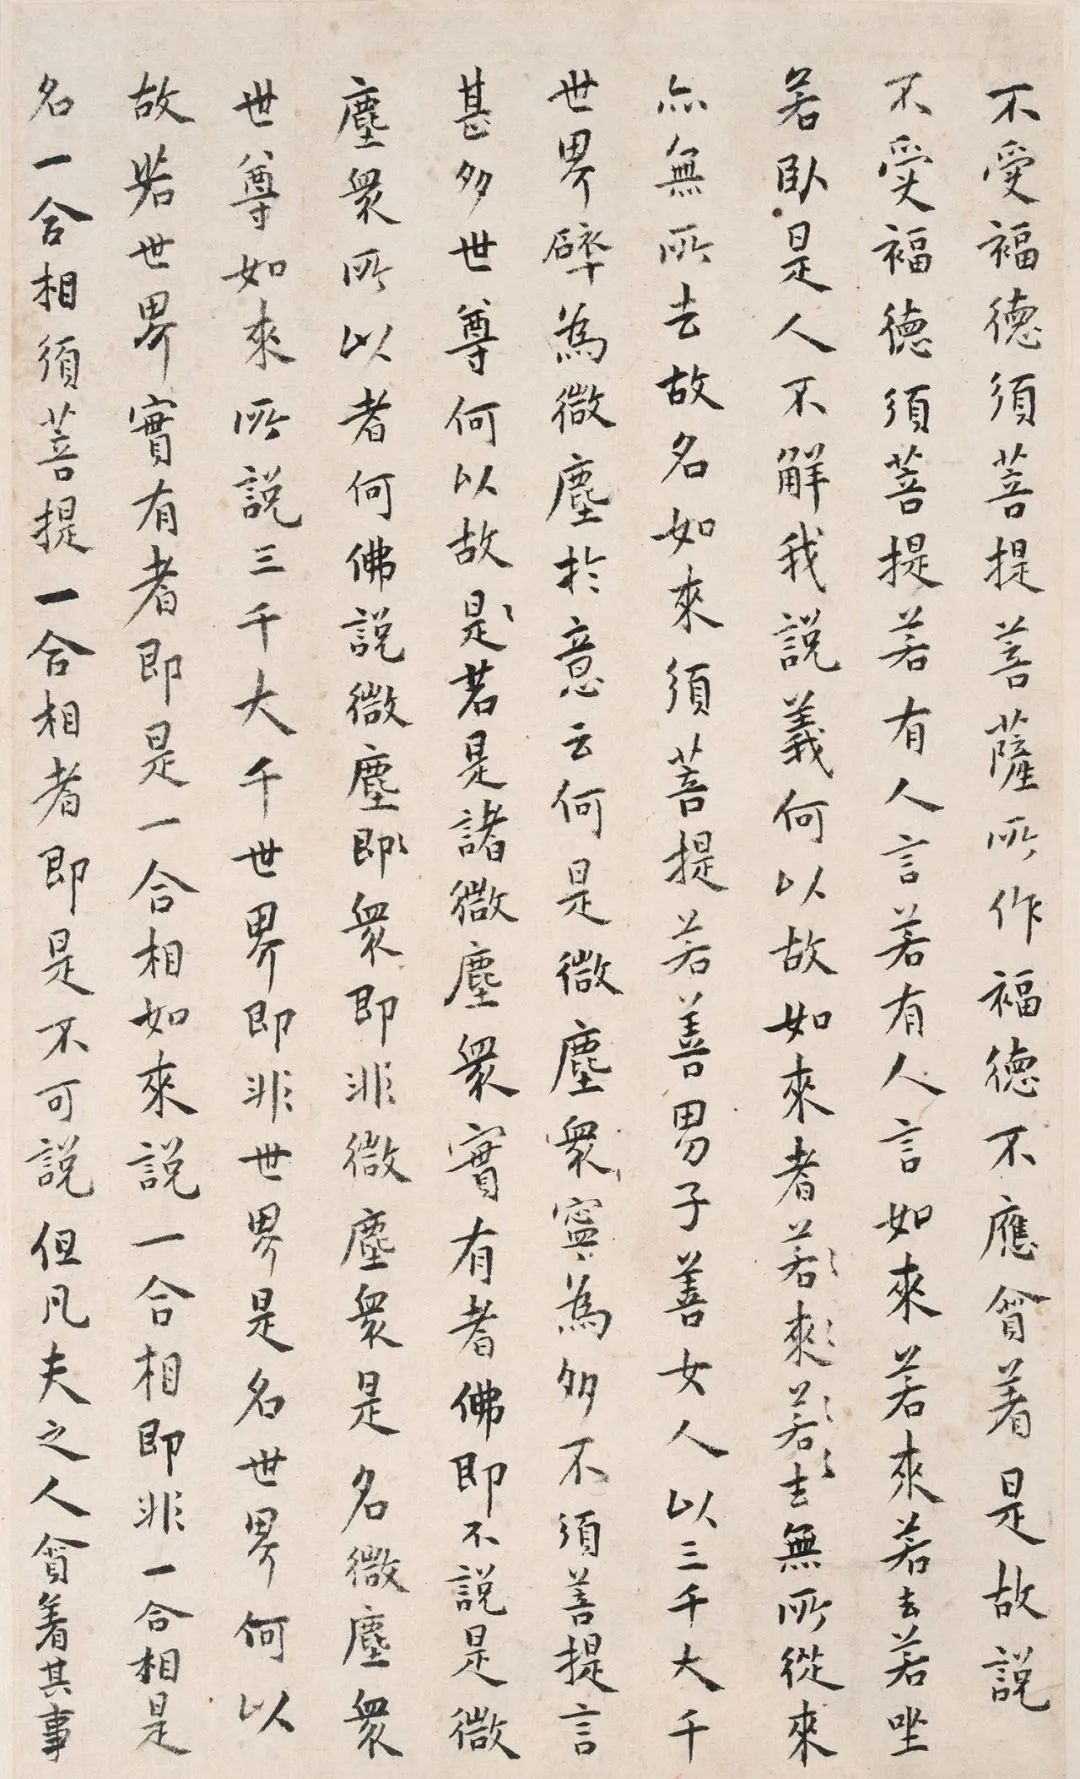 不受福德須菩提菩薩所作福德不應貪著是故說
不受福德須菩提若有人言若有人言如來若來若去若坐
若臥是人不解我說義何以故如來者若來若去無所從來
亦無所去故名如來須菩提若善男子善女人以三千大千
世界碎為微塵於意云何是微塵眾寧為多不須菩提言
甚多世尊何以故是若是諸微塵眾實有者佛即不說是微
塵眾所以者何佛說微塵即眾即非微塵眾是名微塵眾
世尊如來所說三千大千世界即非世界是名世界何以
故若世界實有者即是一合相如來說一合相即非一合相是
名一合相須菩提一合相者即是不可說但凡夫之人貪著其事